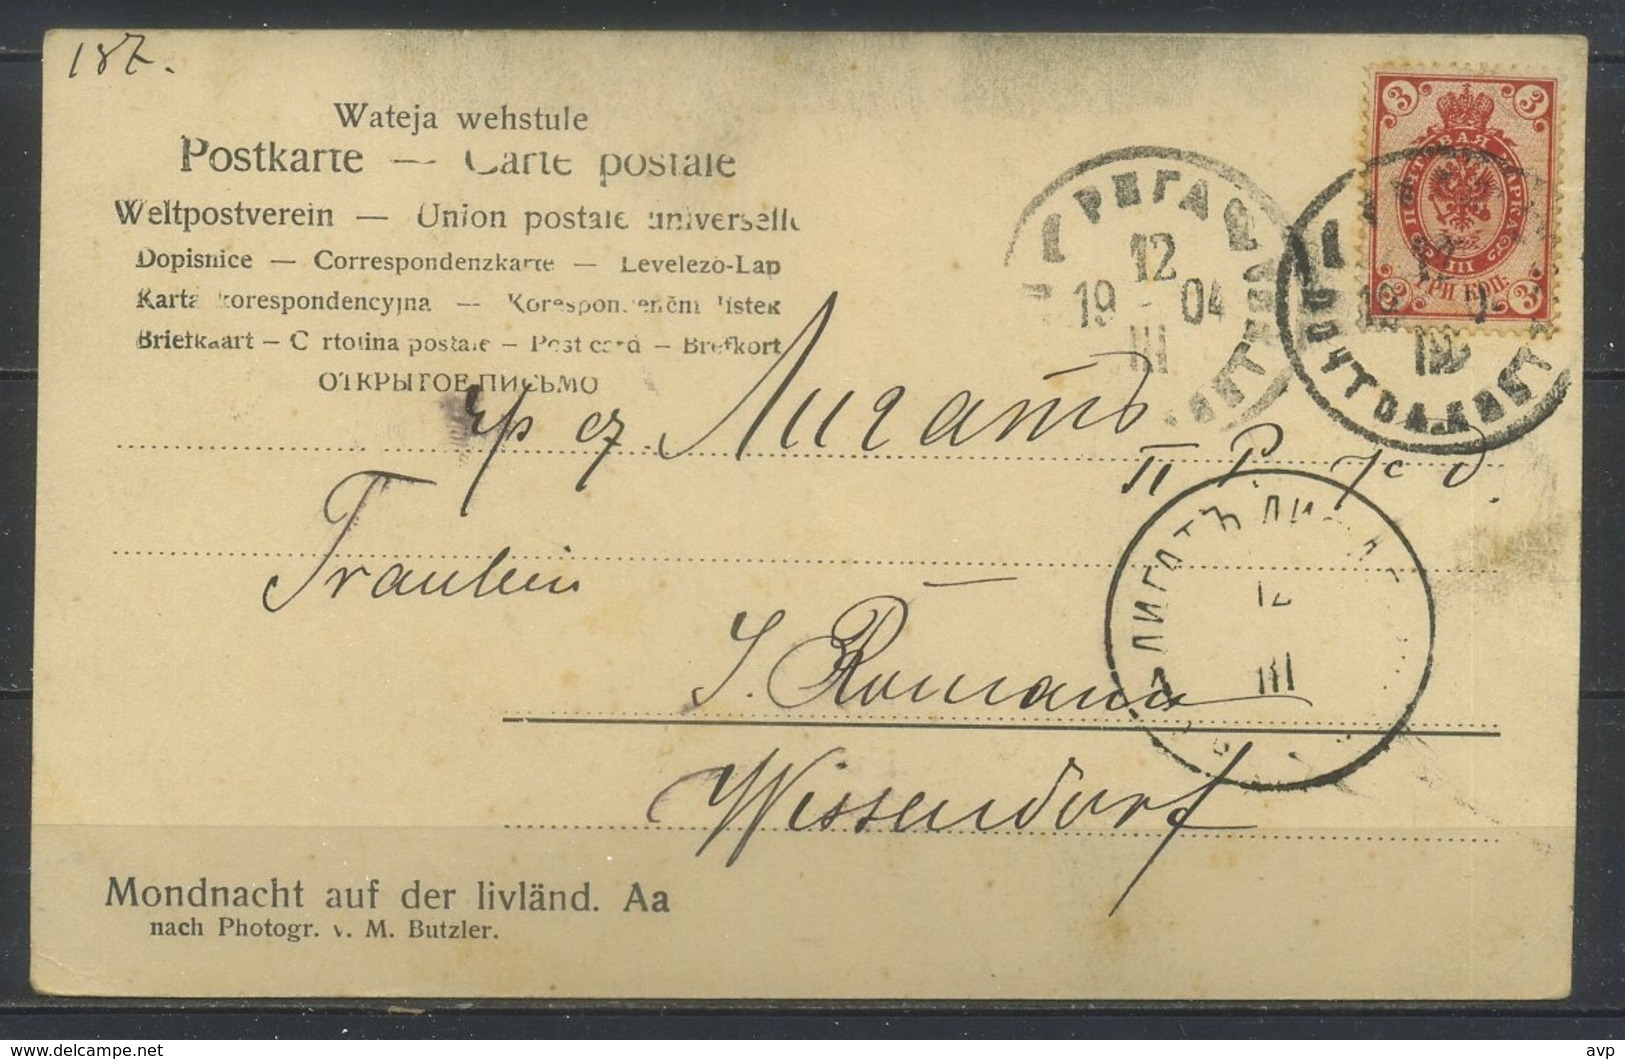 187.
Wateja wehstule
Postkarte — Carte postale
Weltpostverein — Union postale universelle
Dopisnice — Correspondenzkarte — Levelezö-Lap
Karta korespondencyjna — Korespondenčni listek
Briefkaart — Cartolina postale — Post card — Brefkort
ОТКРЫТОЕ ПИСЬМО
3 3
ПОЧТОВАЯ МАРКА
3 ТРИ КОП. 3
РИГА
12
19 04
III
ПОЧТОВ.
чр ст Лигатъ
П Р ж д.
ЛИГАТЪ ЛИ
12
III
Fräulein
J. Romann
Wissendorf
Mondnacht auf der livländ. Aa
nach Photogr. v. M. Butzler.
www.delcampe.net
avp